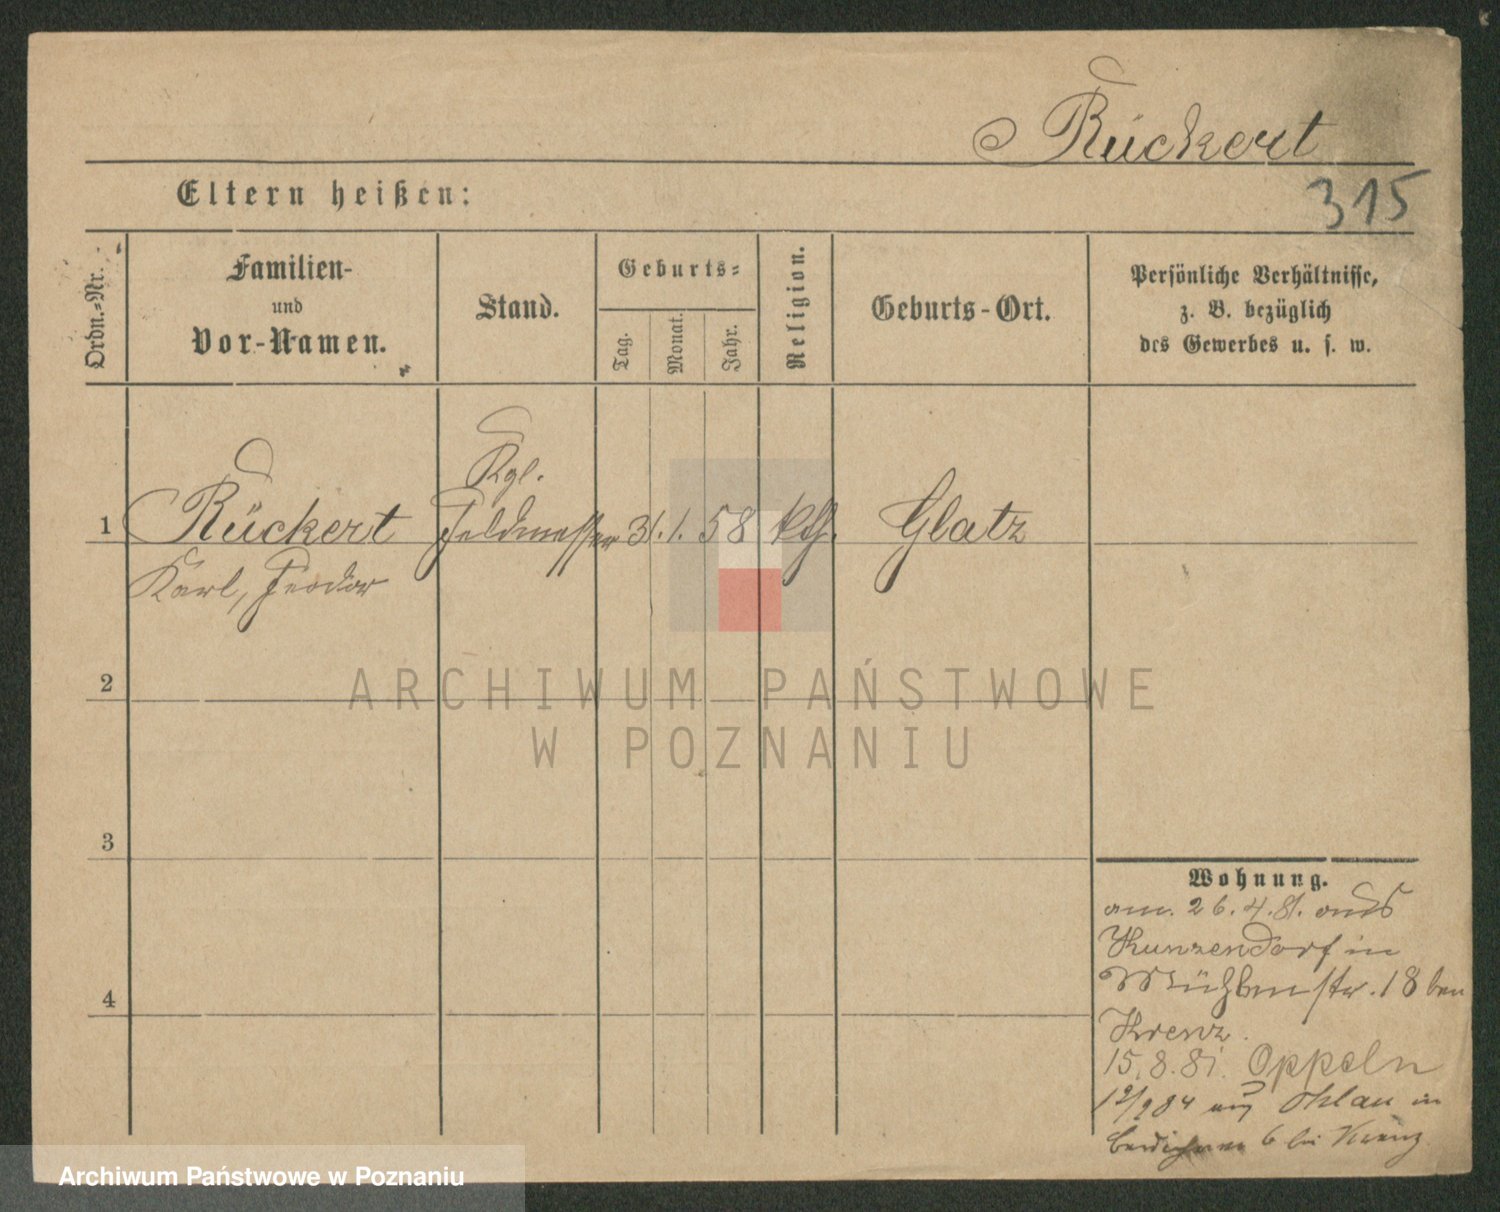 Rückert
Eltern heißen:
315
Ordn.-Nr.
Familien-
und
Vor-Namen.
Stand.
Geburts-
Tag.
Monat.
Jahr.
Religion.
Geburts-Ort.
Persönliche Verhältnisse,
z. B. bezüglich
des Gewerbes u. s. w.
Kgl.
1 Rückert Feldmesser 31. 1. 58 kth. Glatz
Karl, Feodor
2
ARCHIWUM PAŃSTWOWE
W POZNANIU
3
4
Wohnung.
am. 26.4.81. aus
Kunzendorf in
Mühlenstr. 18 bei
Krenz.
15.8.81. Oppeln
84 aus Ohlau in
6 bei Krenz
Archiwum Państwowe w Poznaniu